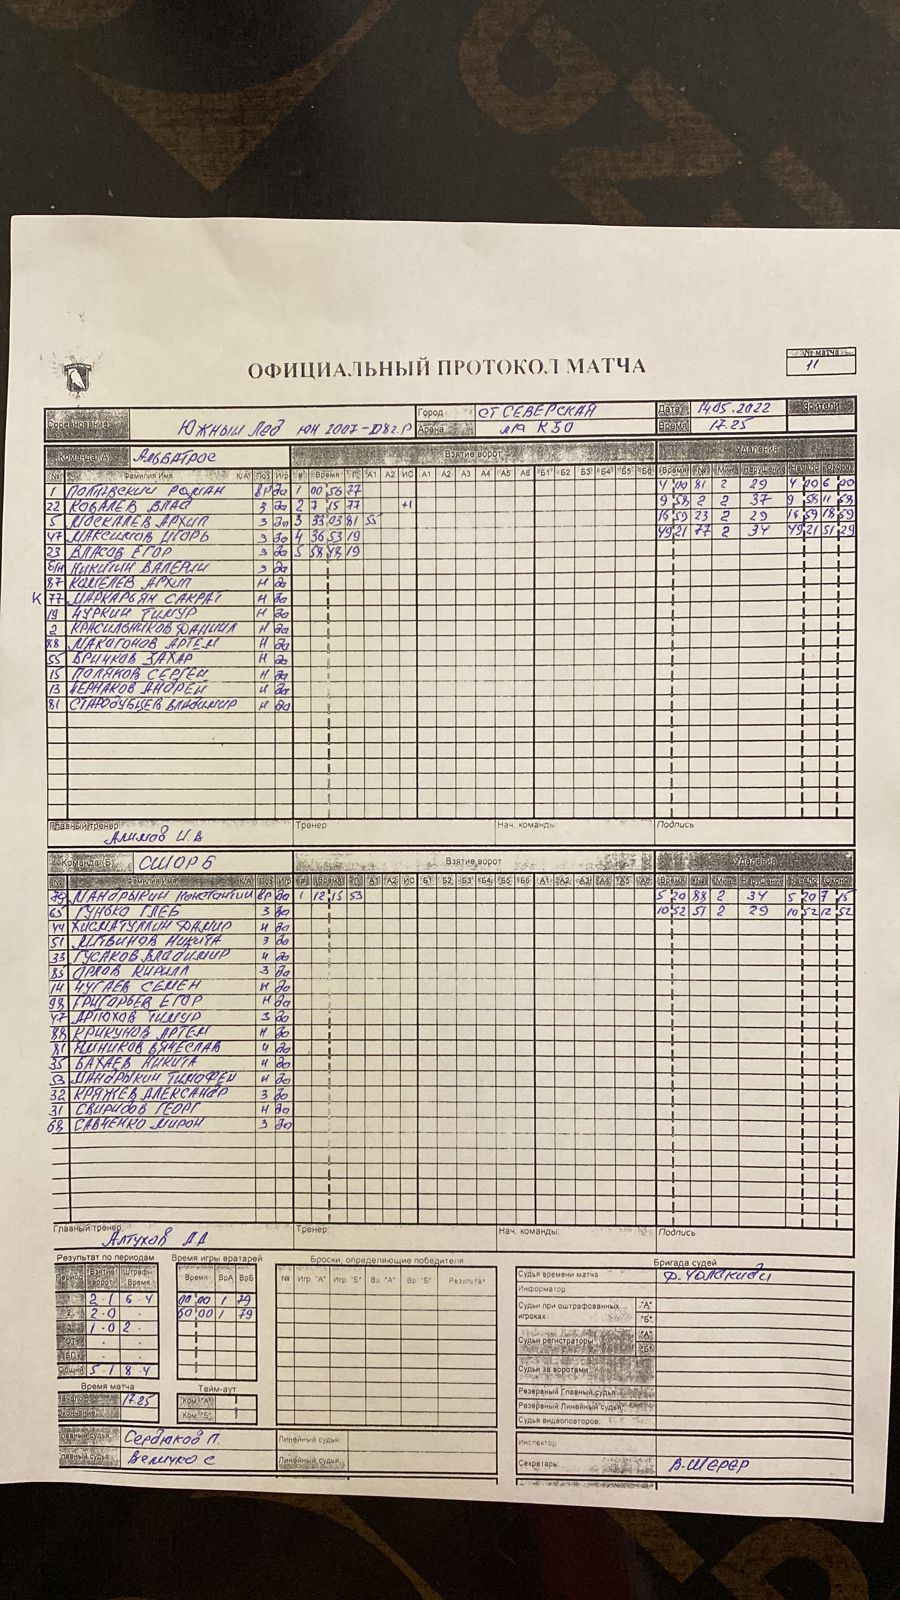 ОФИЦИАЛЬНЫЙ ПРОТОКОЛ МАТЧА
№ матча
11
Соревнование Южный Лед юн 2007-08г.р Город СТ СЕВЕРСКАЯ Дата 14.05.2022 Зрители
Арена Время 17.25
Команда(А) АЛЬБАТРОС Взятие ворот Удаления
№ Фамилия Имя К/А Поз Игр # Время Г А1 А2 ИС А1 А2 А3 А4 А5 А6 Б1 Б2 Б3 Б4 Б5 Б6
1 ПОЛТАВСКИЙ РОМАН вр да 1 00 56 77 4 00 81 2 29 4 00 6 00
22 КОВАЛЕВ ВЛАД З да 2 7 15 77 +1 9 58 2 2 37 9 58 11 58
5 МОСКАЛЕВ АРХИП З да 3 33 03 81 55 16 59 23 2 29 16 59 18 59
47 МАКСИМОВ ИГОРЬ З да 4 36 53 19 49 21 77 2 34 49 21 51 29
23 ВЛАСОВ ЕГОР З да 5 58 48 19
б/н НИКИТИН ВАЛЕРИЙ З да
87 КОШЕЛЕВ АРХИП Н да
К 77 МАРКАРЬЯН Н да
19 НУРКИН ТИМУР Н да
2 КРАСИЛЬНИКОВ ДАНИИЛ Н да
88 МАКАГОНОВ АРТЕМ Н да
55 БРИЧКОВ ЗАХАР Н да
15 ПОЛЯКОВ СЕРГЕЙ Н да
13 АНДРЕЙ Н да
81 СТАРОДУБЦЕВ ВЛАДИМИР Н да
Главный тренер Алимов И.В Тренер Нач. команды Подпись
Команда(Б) СШОР Б Взятие ворот Удаления
Фамилия Имя К/А # Время А1 А2 ИС Б1 Б2 Б3 Б4 Б5 Б6 А1 А2 А3 А4 А5 А6
79 МАНДРЫКИН КОНСТАНТИН вр да 1 12 15 53 5 20 88 2 34 5 20 7 15
65 ГУНЬКО ГЛЕБ З да 10 52 51 2 29 10 52 12 52
44 ХИСМАТУЛЛИН ДАМИР Н да
51 ЛИТВИНОВ НИКИТА З да
33 ГУСАКОВ ВЛАДИМИР Н да
85 ОРЛОВ КИРИЛЛ З да
14 ЧУГАЕВ СЕМЕН Н да
98 ГРИГОРЬЕВ ЕГОР Н да
47 АРТЮХОВ ТИМУР З да
88 КРИКУНОВ АРТЕМ Н да
81 ВЯЧЕСЛАВ Н да
35 БАХАЕВ НИКИТА Н да
53 МАНДРЫКИН ТИМОФЕЙ Н да
32 КРЯЖЕВ АЛЕКСАНДР З да
31 СВИРИДОВ ГЕОРГ Н да
68 САВЧЕНКО МИРОН З да
Главный тренер: Алтухов АА Тренер: Нач. команды: Подпись
Результат по периодам Время игры вратарей Броски, определяющие победителя Бригада судей
Период Взятие ворот Штрафн Время Время ВрА ВрБ № Игр. "А" Игр. "Б" Вр. "А" Вр. "Б" Результат
1 2 1 6 4 00 00 1 79
2 2 0 60 00 1 79
3 1 0 2
ОТ
Общий 5 1 8 4
Судья времени матча
Информатор
Судьи при оштрафованных игроках "А" "Б"
Судьи регистраторы "А" "Б"
Судьи за воротами
Резервный Главный судья
Резервный Линейный судья
Судья видеоповторов
Время матча Тайм-аут
Начало 17.25 Ком. "А"
Окончание Ком. "Б"
Главный судья Сердюков П. Линейный судья Инспектор
Главный судья Величко С Линейный судья Секретарь В.ШЕРЕР